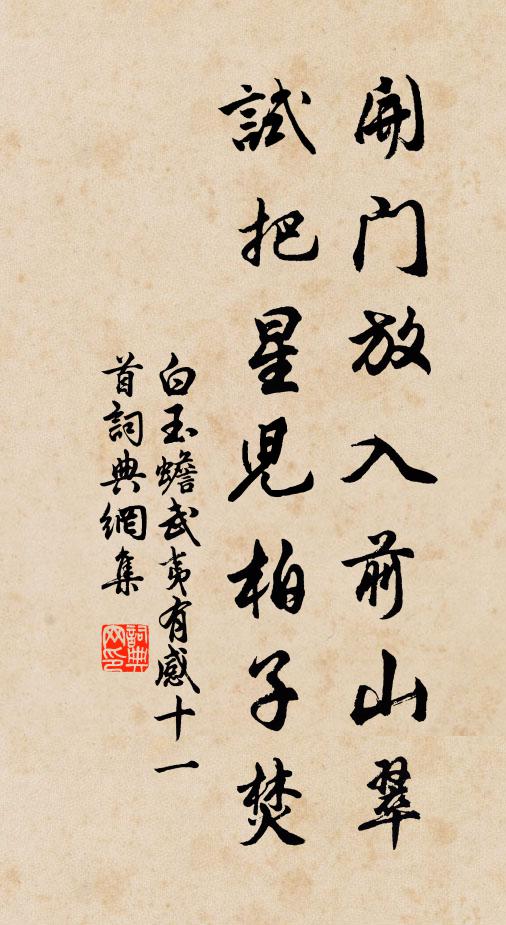 開门放入前山翠
試把星児柏子焚
白玉蟾武夷有感十一
首詞典網集
詞典网印